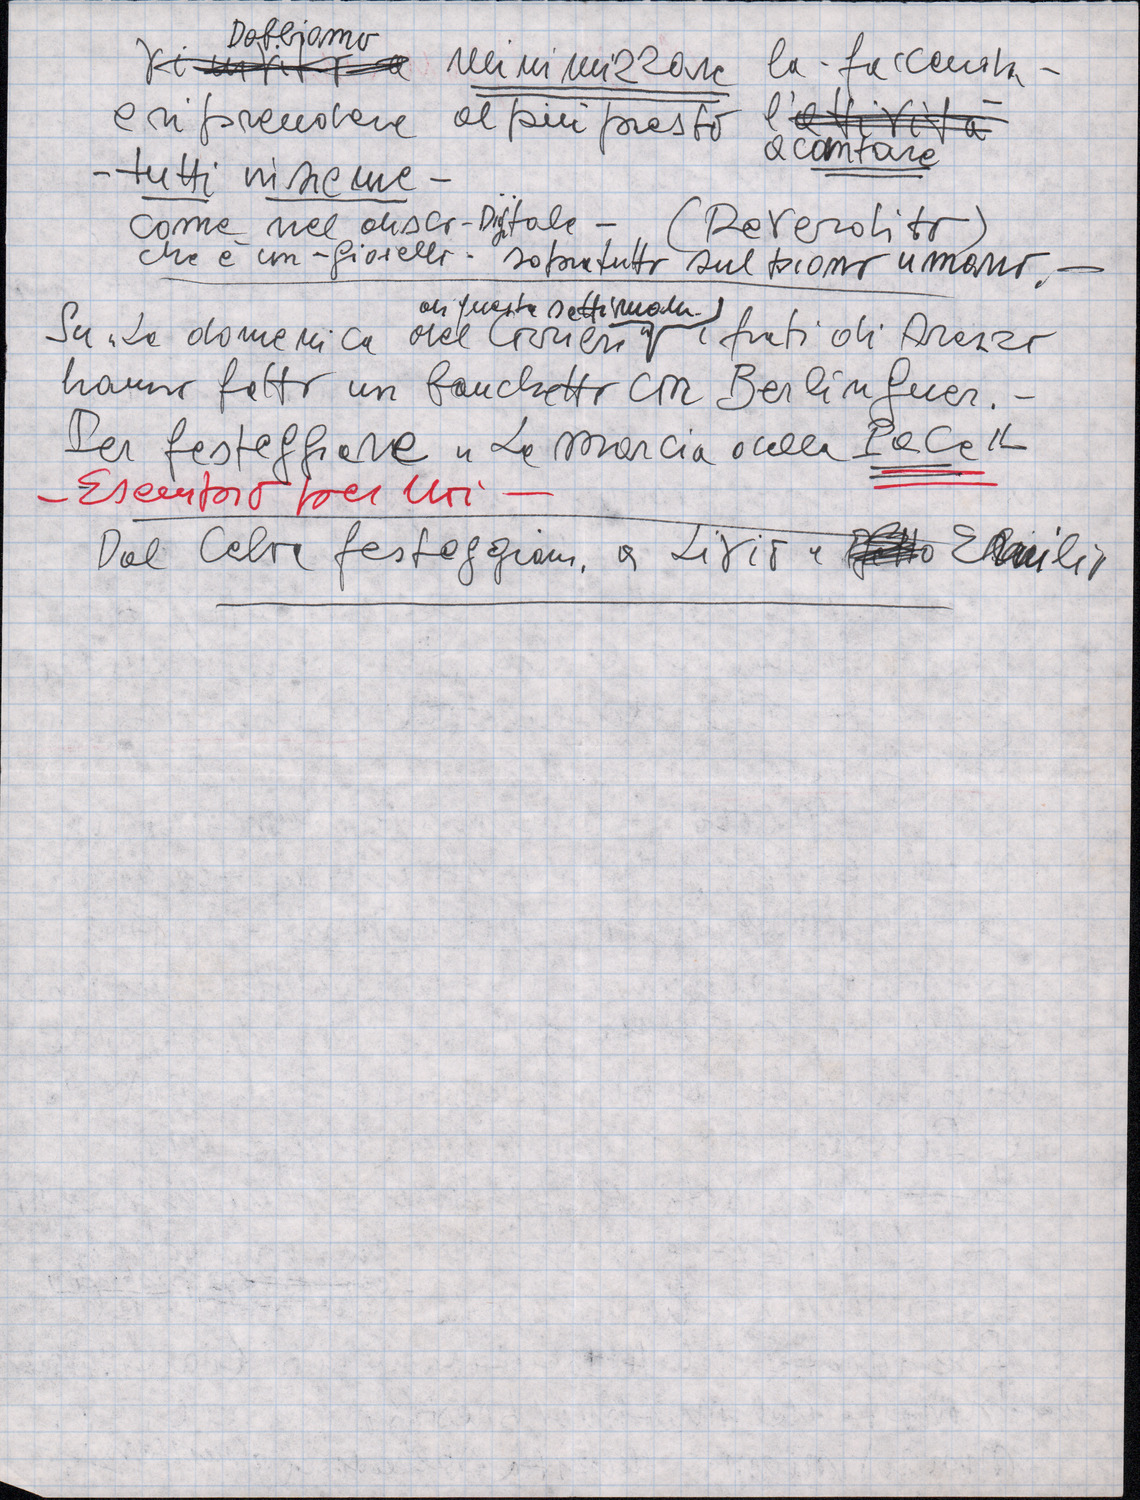 Dobbiamo
Vi invito a minimizzare la faccenda -
e riprendere al più presto l'attività
a cantare
- tutti insieme -
come nel disco - Digitale - (Reverdito)
che è un - gioiello - sopratutto sul piano umano. -
di questa settimana
Su "La domenica del Corriere" i frati di Arezzo
hanno fatto un banchetto con Berlinguer. -
Per festeggiare "La marcia della PaCe"
- Esempio per Noi -
Dal Celva festeggiam. a Livio e Emilio